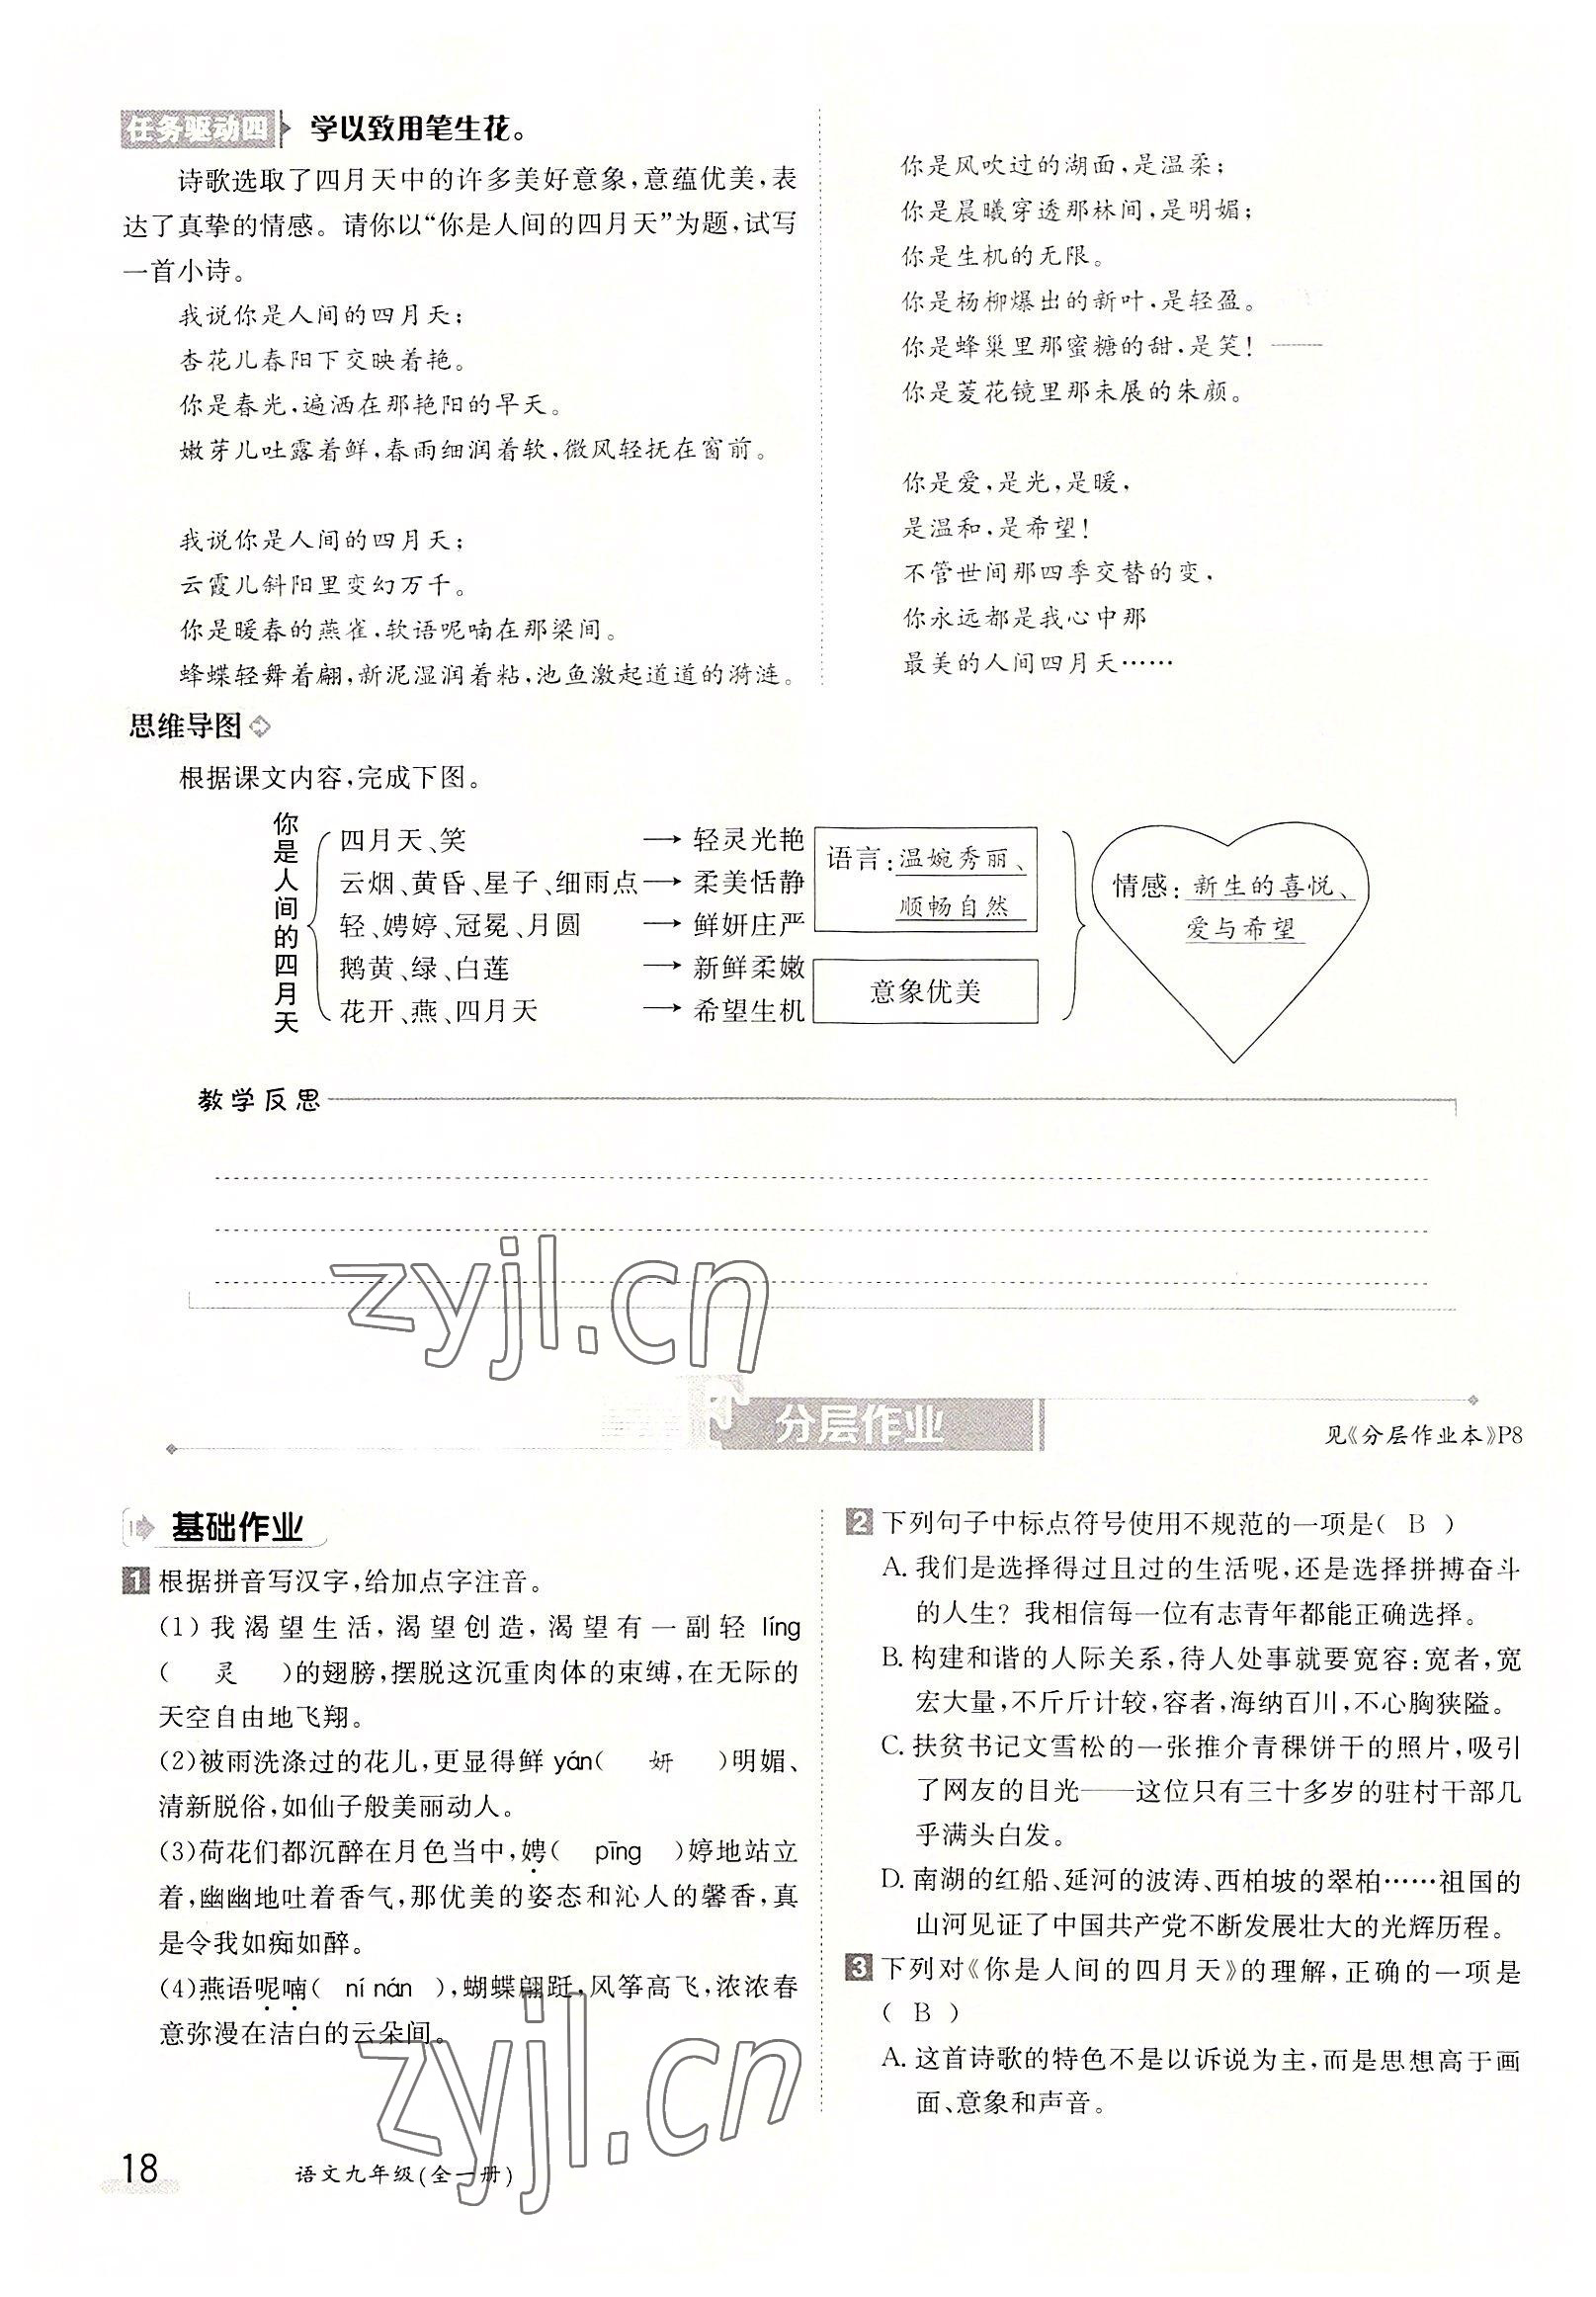 任务驱动四 学以致用笔生花。
诗歌选取了四月天中的许多美好意象,意蕴优美,表
达了真挚的情感。请你以“你是人间的四月天”为题,试写
一首小诗。
我说你是人间的四月天;
杏花儿春阳下交映着艳。
你是春光,遍洒在那艳阳的早天。
嫩芽儿吐露着鲜,春雨细润着软,微风轻抚在窗前。
我说你是人间的四月天;
云霞儿斜阳里变幻万千。
你是暖春的燕雀,软语呢喃在那梁间。
蜂蝶轻舞着翩,新泥湿润着粘,池鱼激起道道的漪涟。
你是风吹过的湖面,是温柔;
你是晨曦穿透那林间,是明媚;
你是生机的无限。
你是杨柳爆出的新叶,是轻盈。
你是蜂巢里那蜜糖的甜,是笑!
你是菱花镜里那未展的朱颜。
你是爱,是光,是暖,
是温和,是希望!
不管世间那四季交替的变,
你永远都是我心中那
最美的人间四月天……
思维导图
根据课文内容,完成下图。
你是人间的四月天
四月天、笑 → 轻灵光艳
云烟、黄昏、星子、细雨点 → 柔美恬静
轻、娉婷、冠冕、月圆 → 鲜妍庄严
鹅黄、绿、白莲 → 新鲜柔嫩
花开、燕、四月天 → 希望生机
语言:温婉秀丽、
顺畅自然
意象优美
情感:新生的喜悦、
爱与希望
教学反思
zyjl.cn
分层作业
见《分层作业本》P8
基础作业
1 根据拼音写汉字,给加点字注音。
(1)我渴望生活,渴望创造,渴望有一副轻 líng
( 灵 )的翅膀,摆脱这沉重肉体的束缚,在无际的
天空自由地飞翔。
(2)被雨洗涤过的花儿,更显得鲜 yán( 妍 )明媚、
清新脱俗,如仙子般美丽动人。
(3)荷花们都沉醉在月色当中,娉( pīng )婷地站立
着,幽幽地吐着香气,那优美的姿态和沁人的馨香,真
是令我如痴如醉。
(4)燕语呢喃( ní nán ),蝴蝶翩跹,风筝高飞,浓浓春
意弥漫在洁白的云朵间。
2 下列句子中标点符号使用不规范的一项是( B )
A. 我们是选择得过且过的生活呢,还是选择拼搏奋斗
的人生?我相信每一位有志青年都能正确选择。
B. 构建和谐的人际关系,待人处事就要宽容:宽者,宽
宏大量,不斤斤计较,容者,海纳百川,不心胸狭隘。
C. 扶贫书记文雪松的一张推介青稞饼干的照片,吸引
了网友的目光——这位只有三十多岁的驻村干部几
乎满头白发。
D. 南湖的红船、延河的波涛、西柏坡的翠柏……祖国的
山河见证了中国共产党不断发展壮大的光辉历程。
3 下列对《你是人间的四月天》的理解,正确的一项是
( B )
A. 这首诗歌的特色不是以诉说为主,而是思想高于画
面、意象和声音。
zyjl.cn
18 语文九年级(全一册)